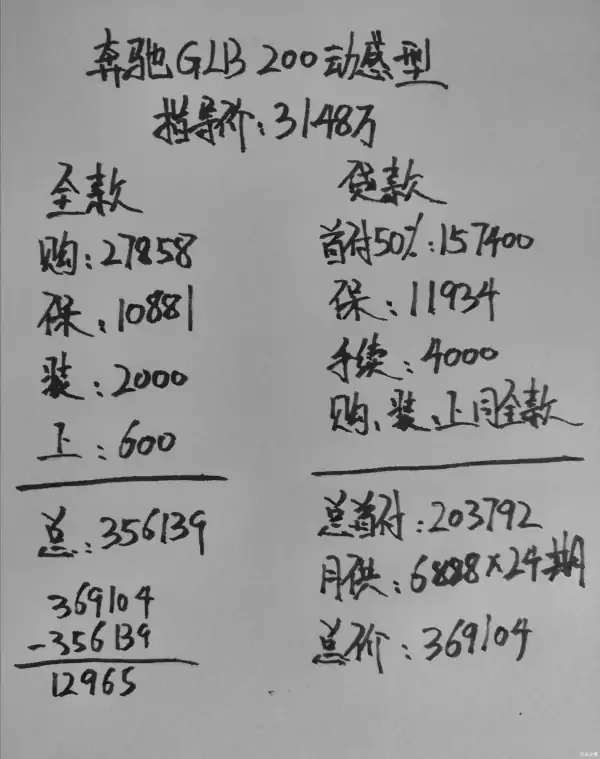 奔驰GLB 200动感型
指导价:3148万
全款
购:27858
保:10881
装:2000
上:600
总:356139
369104
-356139
12965
贷款
首付50%:157400
保:11934
手续:4000
购、装、上同全款
总首付:203792
月供:6888×24期
总价:369104